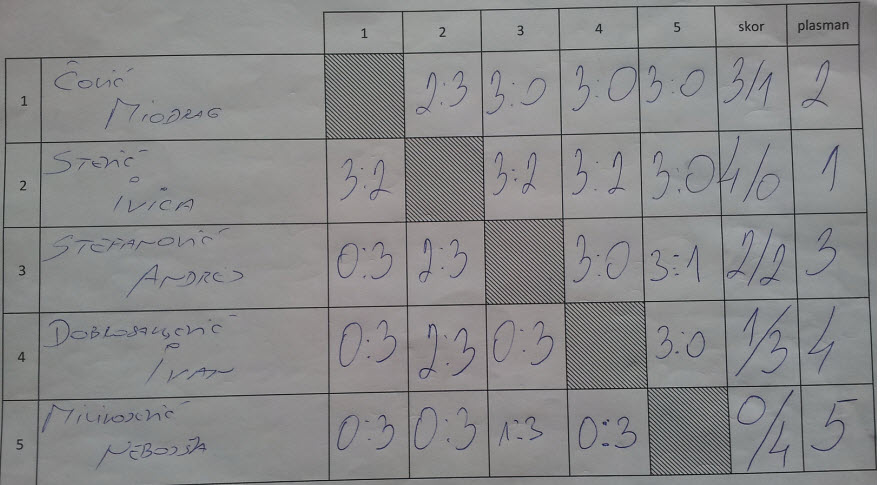 1 2 3 4 5 skor plasman
1 Čović Miodrag 2:3 3:0 3:0 3:0 3/1 2
2 Stević Ivica 3:2 3:2 3:2 3:0 4/0 1
3 Stefanović Andrej 0:3 2:3 3:0 3:1 2/2 3
4 Ivan 0:3 2:3 0:3 3:0 1/3 4
5 Nebojša 0:3 0:3 1:3 0:3 0/4 5